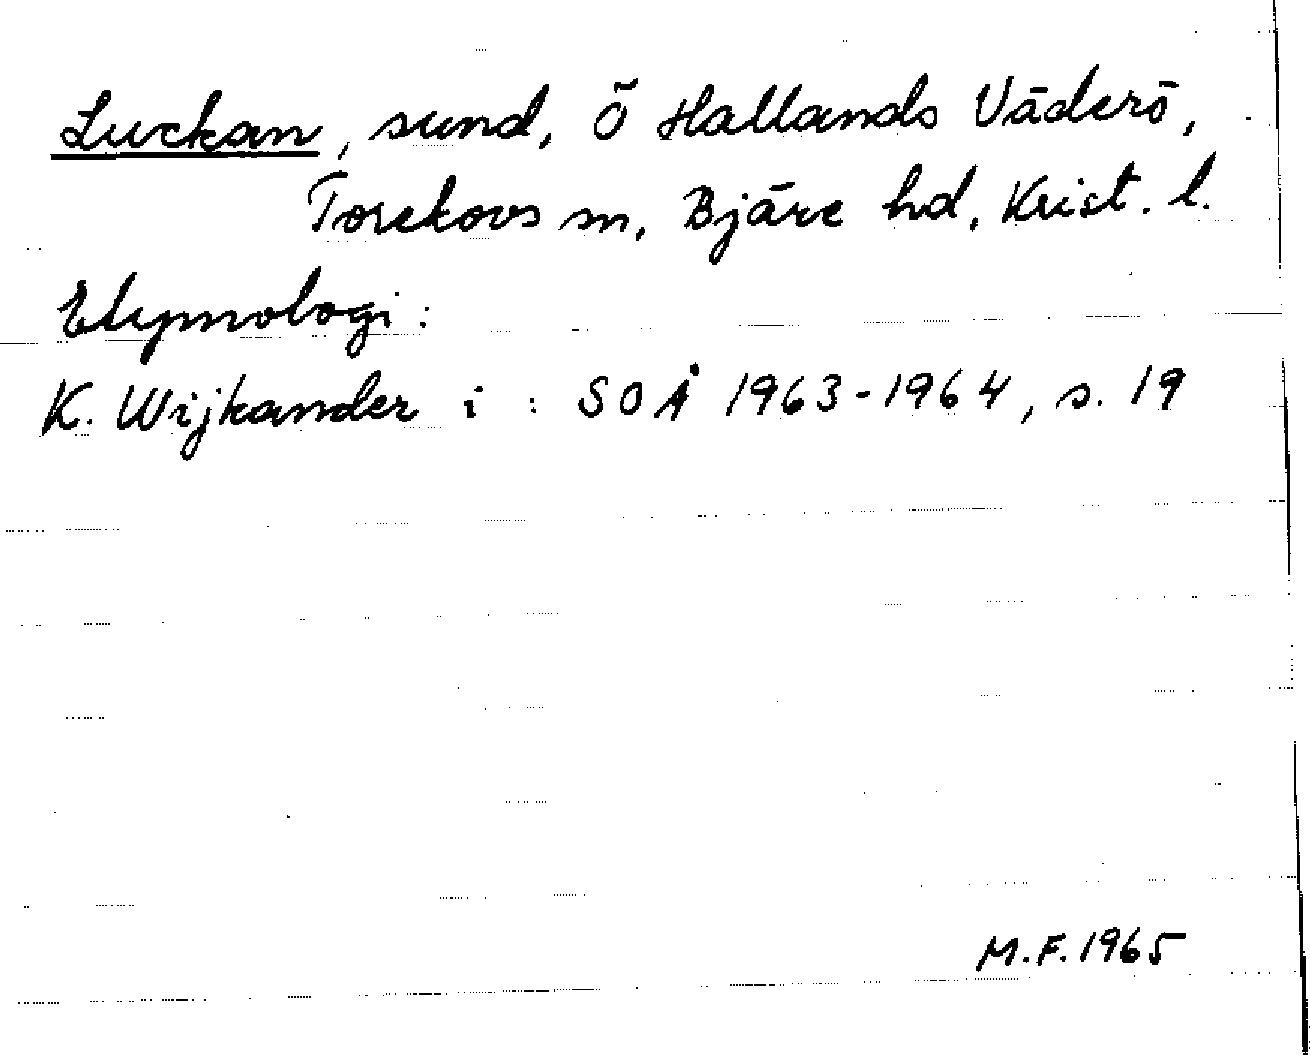 Luckan, sund, Ö Hallands Väderö,
Torekovs sn, Bjäre hd, Krist. l.
Etymologi:
K. Wijkander i : SOÅ 1963-1964, s. 19
M.F. 1965